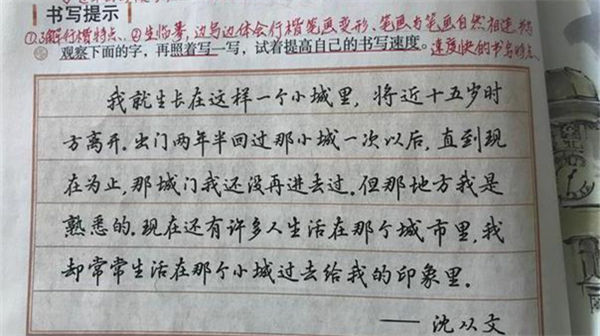 书写提示
①了解行楷特点、②先临摹,边写边体会行楷笔画变形、笔画与笔画自然相连
观察下面的字,再照着写一写,试着提高自己的书写速度。速度快的书写特点
我就生长在这样一个小城里,将近十五岁时
方离开。出门两年半回过那小城一次以后,直到现
在为止,那城门我还没再进去过。但那地方我是
熟悉的。现在还有许多人生活在那个城市里,我
却常常生活在那个小城过去给我的印象里。
——沈从文